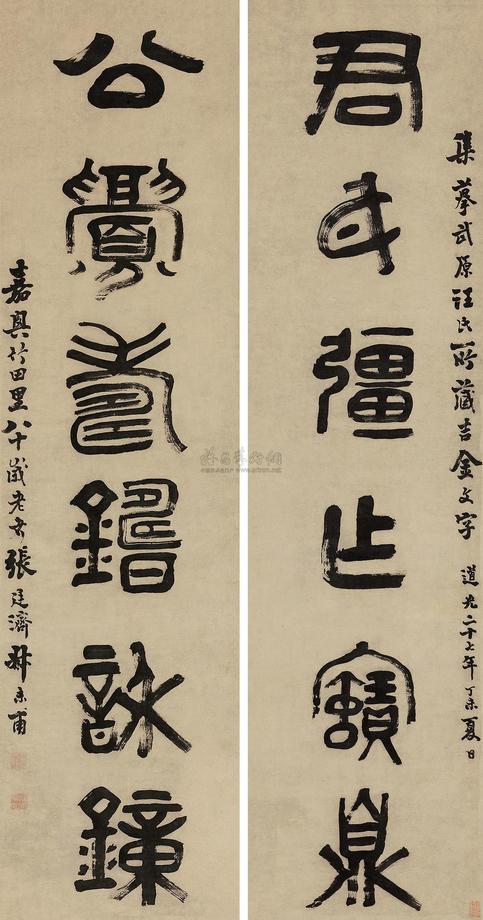 集摹武原汪氏所藏吉金文字 道光二十七年丁未夏日
君彊乍寶鼎
公眉壽鑄詠鐘
嘉興竹田里八十歲老張廷濟叔未甫